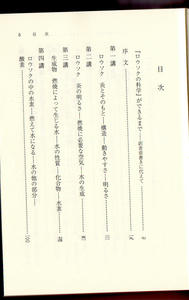 5 目次
目次
『ロウソクの科学』ができるまで
序文
第一講
ロウソク 炎とそのもと―構造―動きやすさ―明るさ
第二講
ロウソク 炎の明るさ―燃焼に必要な空気―水の生成
第三講
生成物 燃焼によって生じる水―水の性質―化合物―水素
第四講
ロウソクの中の水素―燃えて水になる―水の他の部分―
酸素